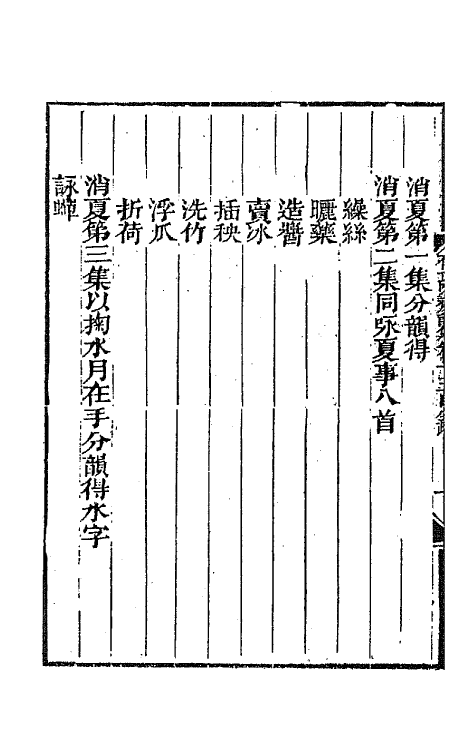 消夏第一集分韻得
消夏第二集同咏夏事八首
繰絲
曬藥
造醬
賣冰
插秧
洗竹
浮瓜
折荷
消夏第三集以掬水月在手分韻得水字
詠蟬